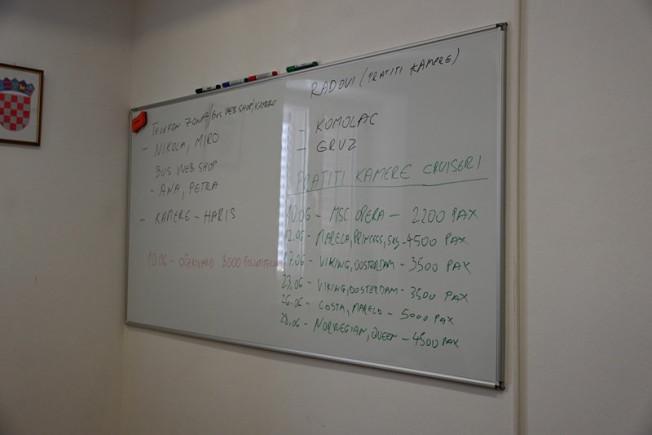 TELEFON ZONA/BUS WEB SHOP/KAMERE
- NIKOLA, MIRO
BUS WEB SHOP
- ANA, PETRA
- KAMERE - HARIS
10.06 - 8000
RADOVI (PRATITI KAMERE)
- KOMOLAC
- GRUZ
PRATITI KAMERE CRUISERI
10.06 - MSC OPERA - 2200 PAX
12.06 - MARELA, PRINCESS, - 4500 PAX
17.06 - VIKING, OOSTERDAM - 3500 PAX
23.06 - VIKING, OOSTERDAM - 3500 PAX
26.06 - COSTA, MARELA - 5000 PAX
28.06 - NORWEGIAN, QUEEN - 4500 PAX